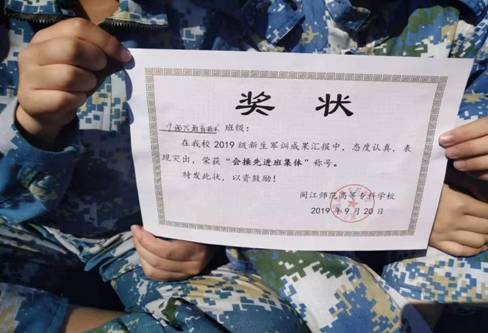 奖 状
班级：
在我校2019级新生军训成果汇报中，态度认真，表
现突出，荣获“会操先进班集体”称号。
特发此状，以资鼓励！
闽江师范高等专科学校
2019年9月20日